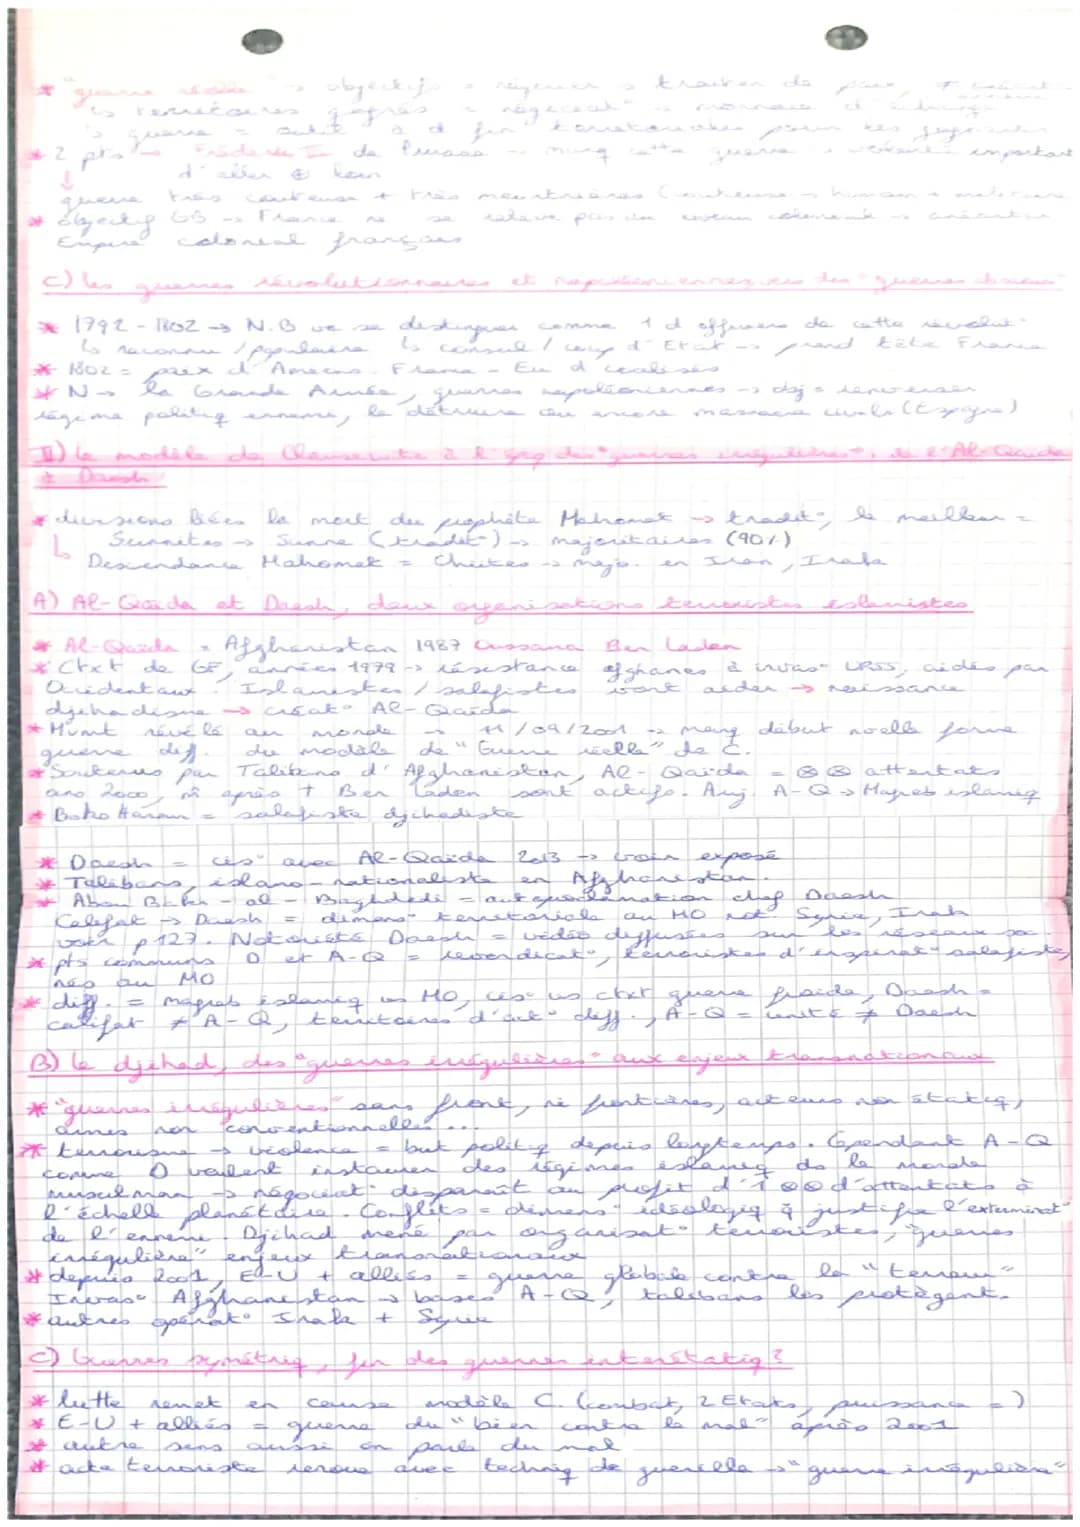 * "guerre réelle" → objectifs = négocier → traiter de paix, ≠
↳ territoires gagnés = négociat° → monnaie d'échange
↳ guerre =
* 2 pts → Frédéric II de Prusse → marq cette guerre important
d'aller ⊕ loin
guerre très couteuse + très meurtrières (couteuse → humain + militaire
* objectif GB → France ne se relève pas → anéantir
Empire colonial français
C) les guerres révolutionnaires et napoléoniennes, vers des "guerres absolues"
* 1792 - 1802 → N.B va se distinguer comme 1 d officiers de cette révolut°
↳ reconnu / populaire ↳ consul / coup d'Etat → prend tête France
* 1802 = paix d'Amiens. France - Eu d coalisés
* N → la Grande Armée, guerres napoléoniennes → obj = renverser
régime politiq ennemi, le détruire ou encore massacre civils (Espagne)
II) le modèle de Clausewitz à l'épr des "guerres irrégulières", de l'Al-Qaida
à Daesh
* divisions liées la mort du prophète Mahomet → tradit°, le meilleur =
↳ Sunnites → Sunna (tradit°) → majoritaires (90%)
Descendance Mahomet = Chiites → majo. en Iran, Irak
A) Al-Qaïda et Daesh, deux organisations terroristes islamistes
* Al-Qaïda = Afghanistan 1987 Oussama Ben Laden
* Ctxt de GF, années 1979 → résistance afghanes à invas° URSS, aidés par
Occidentaux. Islamistes / salafistes vont aider → naissance
djihadisme → créat° Al-Qaïda
* Mvmt révélé au monde → 11/09/2001 → marq début nvelle forme
guerre diff. du modèle de "Guerre réelle" de C.
* Soutenus par Talibans d'Afghanistan, Al-Qaïda = ⊗⊗ attentats
ans 2000, m̂ après † Ben Laden sont actifs. Auj. A-Q → Magreb islamiq
* Boko Haram = salafiste djihadiste
* Daesh = cis° avec Al-Qaïda 2013 → voir exposé
* Talibans, islamo-nationaliste en Afghanistan.
* Abou Bakr-al-Baghdadi = autoproclamation chef Daesh
Califat → Daesh = dimens° territoriale au MO not° Syrie, Irak
voir p 127. Notoriété Daesh = vidéo diffusées sur les réseaux so.
* pts communs D et A-Q = revendicat°, terroristes d'inspirat° salafiste,
nés au MO
* diff. = magreb islamiq vs MO, cis° vs ctxt guerre froide, Daesh =
califat ≠ A-Q, territoires d'act° diff., A-Q = unité ≠ Daesh
B) le djihad, des "guerres irrégulières" aux enjeux transnationaux
* "guerres irrégulières" sans front, ni frontières, acteurs non étatiq,
armes non conventionnelles ...
* terrorisme → violence = but politiq depuis longtemps. Cependant A-Q
comme D veulent instaurer des régimes islamiq ds le monde
musulman → négociat° disparaît au profit d'1 ⊗⊗ d'attentats à
l'échelle planétaire. Conflits = dimens° idéologiq q justifie l'exterminat°
de l'ennemi. Djihad mené par organisat° terroristes, "guerres
irrégulière" enjeux transnationaux
* depuis 2001, E-U + alliés = guerre globale contre la "terreur"
Invas° Afghanistan → bases A-Q, talibans les protègent.
* autres opérat° Irak + Syrie
C) Guerres symétriq, fin des guerres interétatiq ?
* lutte remet en cause modèle C. (combat, 2 Etats, puissance = )
* E-U + alliés = guerre du "bien contre le mal" après 2001
* autre sens aussi on parle du mal
* acte terroriste renoue avec techniq de guerilla → "guerre irrégulière"